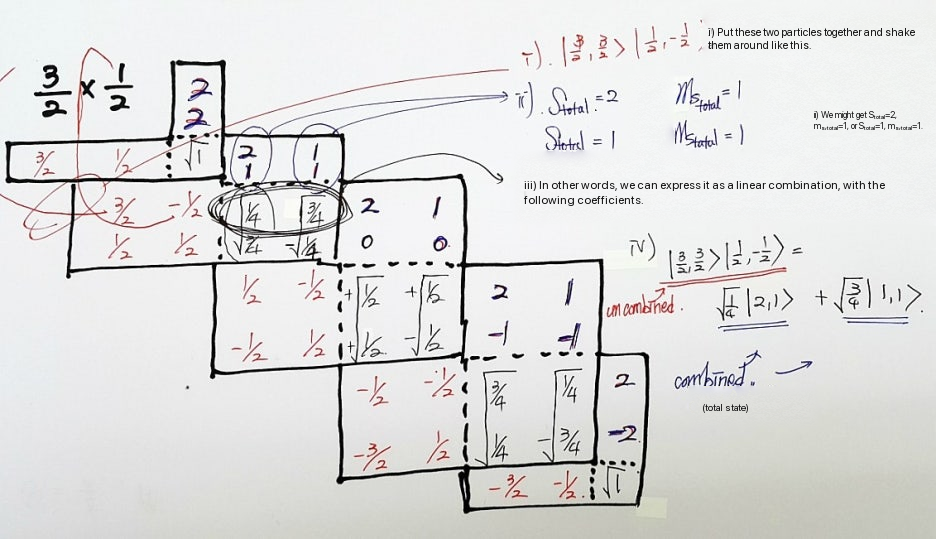 3/2 × 1/2
2
2
3/2 1/2 √1 2 1
1 1
3/2 -1/2 √1/4 √3/4 2 1
1/2 1/2 √3/4 -√1/4 0 0
1/2 -1/2 +√1/2 +√1/2 2 1
-1/2 1/2 +√1/2 -√1/2 -1 -1
-1/2 -1/2 √3/4 √1/4 2
-3/2 1/2 √1/4 -√3/4 -2
-3/2 -1/2 √1
i). |3/2, 3/2 > |1/2, -1/2
i) Put these two particles together and shake
them around like this.
ii). Stotal = 2 Mstotal = 1
Stotal = 1 Mstotal = 1
ii) We might get Stotal=2,
mstotal=1, or Stotal=1, mstotal=1.
iii) In other words, we can express it as a linear combination, with the
following coefficients.
iv) |3/2, 3/2 > |1/2, -1/2 > =
uncombined. √1/4 |2,1> + √3/4 |1,1>.
combined.
(total state)